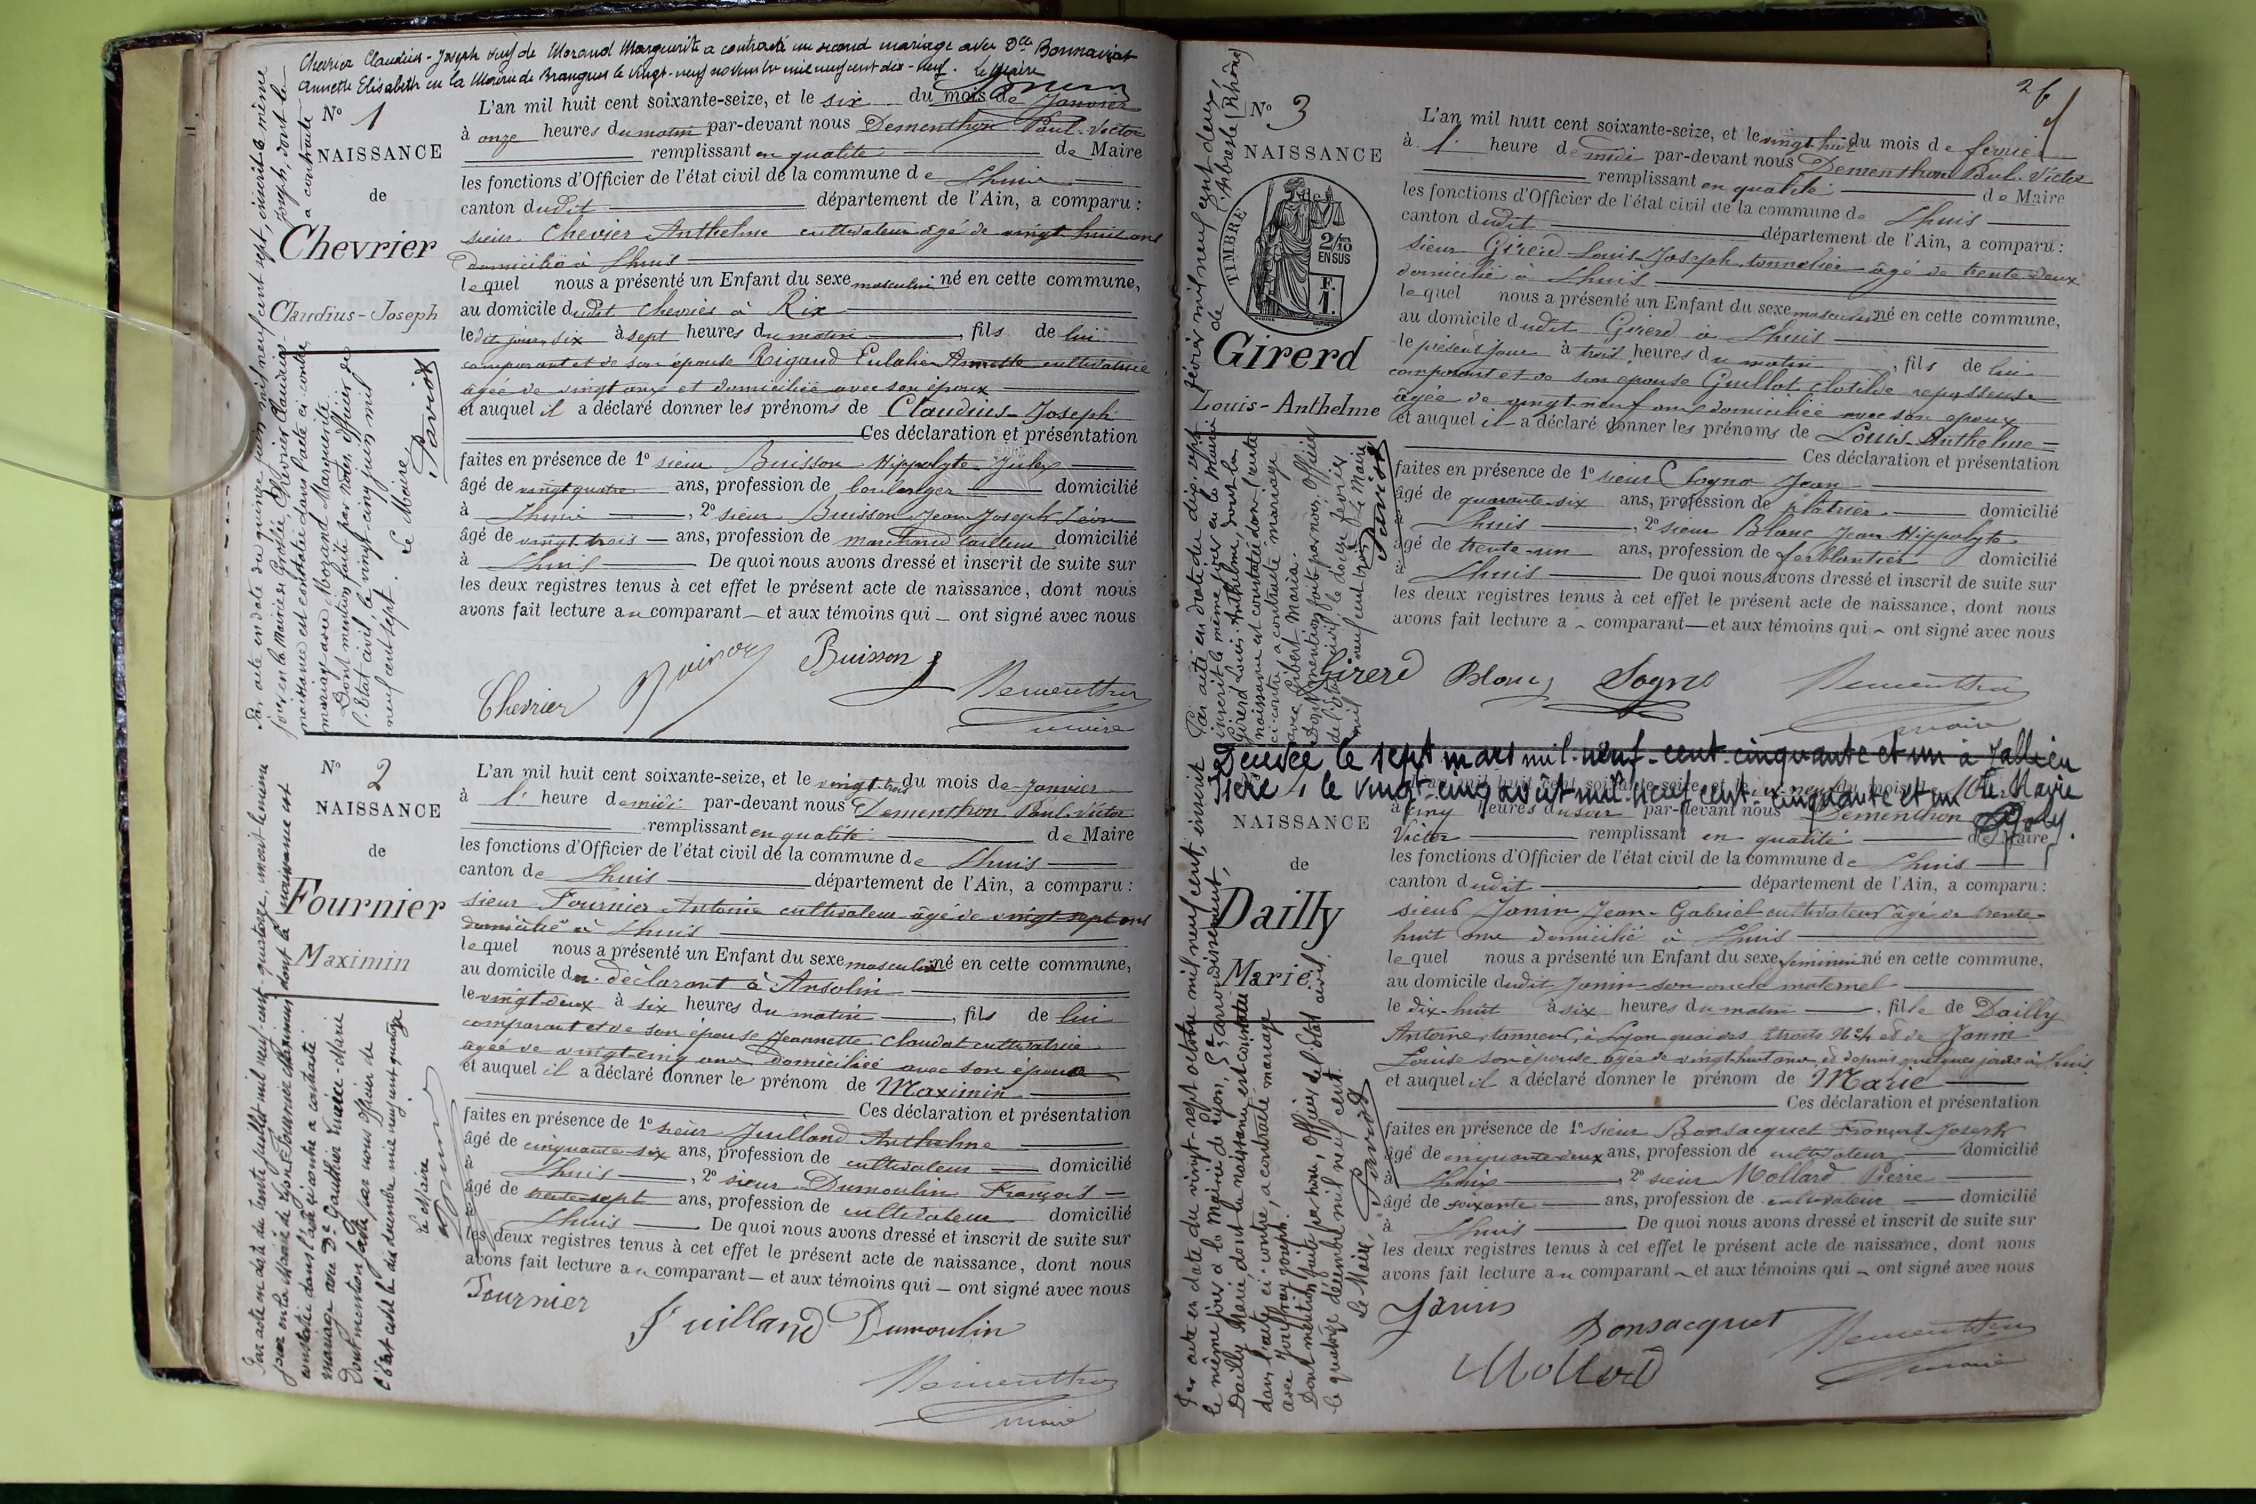 Chevrier Claudius-Joseph veuf de Morand Marguerite a contracté un second mariage avec Dlle Bonnaviat
Annette Elisabeth en la Mairie de Brangues le vingt-neuf novembre mil neuf cent dix-neuf. Le Maire
N° 1
NAISSANCE
de
Chevrier
Claudius-Joseph
Par acte en date du quinze juin mil neuf cent sept, inscrit le même
jour en la Mairie de Groslée, Chevrier Claudius-Joseph, dont la
naissance est constatée dans l'acte ci-contre, a contracté
mariage avec Morand Marguerite.
Dont mention faite par nous, officier de
l'Etat civil, le vingt-cinq juin mil
neuf cent sept. Le Maire,
Parviot
L'an mil huit cent soixante-seize, et le six du mois de Janvier
à onze heures du matin par-devant nous Dementhon Paul-Victor
remplissant en qualité de Maire
les fonctions d'Officier de l'état civil de la commune de Lhuis
canton dudit département de l'Ain, a comparu :
sieur Chevrier Anthelme cultivateur âgé de vingt huit ans
domicilié à Lhuis
lequel nous a présenté un Enfant du sexe masculin né en cette commune,
au domicile dudit Chevrier à Rix
le dit jour, six à sept heures du matin, fils de lui
comparant et de son épouse Rigaud Eulalie Annette cultivatrice
âgée de vingt ans et domiciliée avec son époux
et auquel il a déclaré donner les prénoms de Claudius-Joseph
Ces déclaration et présentation
faites en présence de 1° sieur Buisson Hippolyte Jules
âgé de vingt quatre ans, profession de boulanger domicilié
à Lhuis, 2° sieur Buisson Jean Joseph Léon
âgé de vingt trois ans, profession de marchand tailleur domicilié
à Lhuis De quoi nous avons dressé et inscrit de suite sur
les deux registres tenus à cet effet le présent acte de naissance, dont nous
avons fait lecture au comparant et aux témoins qui ont signé avec nous
Chevrier Buisson Dementhon
maire
N° 2
NAISSANCE
de
Fournier
Maximin
Par acte en date du trente juillet mil neuf cent quatorze, inscrit le même
jour en la Mairie de Lyon, Fournier Maximin dont la naissance est
constatée dans l'acte ci-contre a contracté
mariage avec De Gauthier Marie-Marie
Dont mention faite par nous officier de
l'état civil le dix décembre mil neuf cent quatorze
Le Maire
L'an mil huit cent soixante-seize, et le vingt trois du mois de Janvier
à 1 heure de midi par-devant nous Dementhon Paul-Victor
remplissant en qualité de Maire
les fonctions d'Officier de l'état civil de la commune de Lhuis
canton de Lhuis département de l'Ain, a comparu :
sieur Fournier Antoine cultivateur âgé de vingt sept ans
domicilié à Lhuis
lequel nous a présenté un Enfant du sexe masculin né en cette commune,
au domicile du déclarant à Ansolin
le vingt deux à six heures du matin, fils de lui
comparant et de son épouse Jeannette Claudat cultivatrice
âgée de vingt-cinq ans domiciliée avec son époux
et auquel il a déclaré donner le prénom de Maximin
Ces déclaration et présentation
faites en présence de 1° sieur Juilland Anthelme
âgé de cinquante six ans, profession de cultivateur domicilié
à Lhuis, 2° sieur Dumoulin François
âgé de trente-sept ans, profession de cultivateur domicilié
à Lhuis De quoi nous avons dressé et inscrit de suite sur
les deux registres tenus à cet effet le présent acte de naissance, dont nous
avons fait lecture au comparant et aux témoins qui ont signé avec nous
Fournier Juilland Dumoulin
Dementhon
maire
26
N° 3
NAISSANCE
de
TIMBRE
2/10
EN SUS
Girerd
Louis-Anthelme
Par acte en date du dix-sept février mil neuf cent deux,
inscrit le même jour en la Mairie de l'Arbresle (Rhône)
Girerd Louis-Anthelme, dont la
naissance est constatée dans l'acte
ci-contre, a contracté mariage
avec Gibert Maria.
Dont mention faite par nous, Officier
de l'état civil, le douze février
mil neuf cent trois. Le Maire,
Parviot
L'an mil huit cent soixante-seize, et le vingt huit du mois de février
à 1 heure de midi par-devant nous Dementhon Paul-Victor
remplissant en qualité de Maire
les fonctions d'Officier de l'état civil de la commune de Lhuis
canton dudit département de l'Ain, a comparu :
sieur Girerd Louis-Joseph tonnelier âgé de trente deux
domicilié à Lhuis
lequel nous a présenté un Enfant du sexe masculin né en cette commune,
au domicile dudit Girerd à Lhuis
le présent jour à trois heures du matin, fils de lui
comparant et de son épouse Guillot Clotilde repasseuse
âgée de vingt-neuf ans domiciliée avec son époux
et auquel il a déclaré donner les prénoms de Louis-Anthelme
Ces déclaration et présentation
faites en présence de 1° sieur Sogno Jean
âgé de quarante-six ans, profession de plâtrier domicilié
à Lhuis, 2° sieur Blanc Jean Hippolyte
âgé de trente-un ans, profession de ferblantier domicilié
à Lhuis De quoi nous avons dressé et inscrit de suite sur
les deux registres tenus à cet effet le présent acte de naissance, dont nous
avons fait lecture a comparant et aux témoins qui ont signé avec nous
Girerd Blanc Sogno Dementhon
maire
Décédée le sept mars mil-neuf-cent-cinquante et un à Jallieu
Isère, le vingt-cinq août mil-neuf-cent-cinquante et un Le Maire
NAISSANCE
de
Dailly
Marie
Par acte en date du vingt-sept octobre mil neuf cent, inscrit
le même jour à la Mairie de Lyon, 5e arrondissement,
Dailly Marie dont la naissance est constatée
dans l'acte ci-contre, a contracté mariage
avec Jouffray Joseph.
Dont mention faite par nous, Officier de l'état civil,
le quatorze décembre mil neuf cent.
Le Maire, Parviot
L'an mil huit cent soixante-seize, et le dix-neuf du mois de Mars
à cinq heures du soir par-devant nous Dementhon Paul
Victor remplissant en qualité de Maire
les fonctions d'Officier de l'état civil de la commune de Lhuis
canton dudit département de l'Ain, a comparu :
sieur Janin Jean-Gabriel cultivateur âgé de trente
huit ans domicilié à Lhuis
lequel nous a présenté un Enfant du sexe féminin né en cette commune,
au domicile dudit Janin son oncle maternel
le dix-huit à six heures du matin, fille de Dailly
Antoine, tanneur, à Lyon quai des Etroits N° 4 et de Janin
Louise son épouse, âgée de vingt-huit ans, et depuis quelques jours à Lhuis
et auquel il a déclaré donner le prénom de Marie
Ces déclaration et présentation
faites en présence de 1° sieur Bonsacquet François Joseph
âgé de cinquante-deux ans, profession de cultivateur domicilié
à Lhuis, 2° sieur Mollard Pierre
âgé de soixante ans, profession de cultivateur domicilié
à Lhuis De quoi nous avons dressé et inscrit de suite sur
les deux registres tenus à cet effet le présent acte de naissance, dont nous
avons fait lecture au comparant et aux témoins qui ont signé avec nous
Janin Bonsacquet Dementhon
Mollard maire